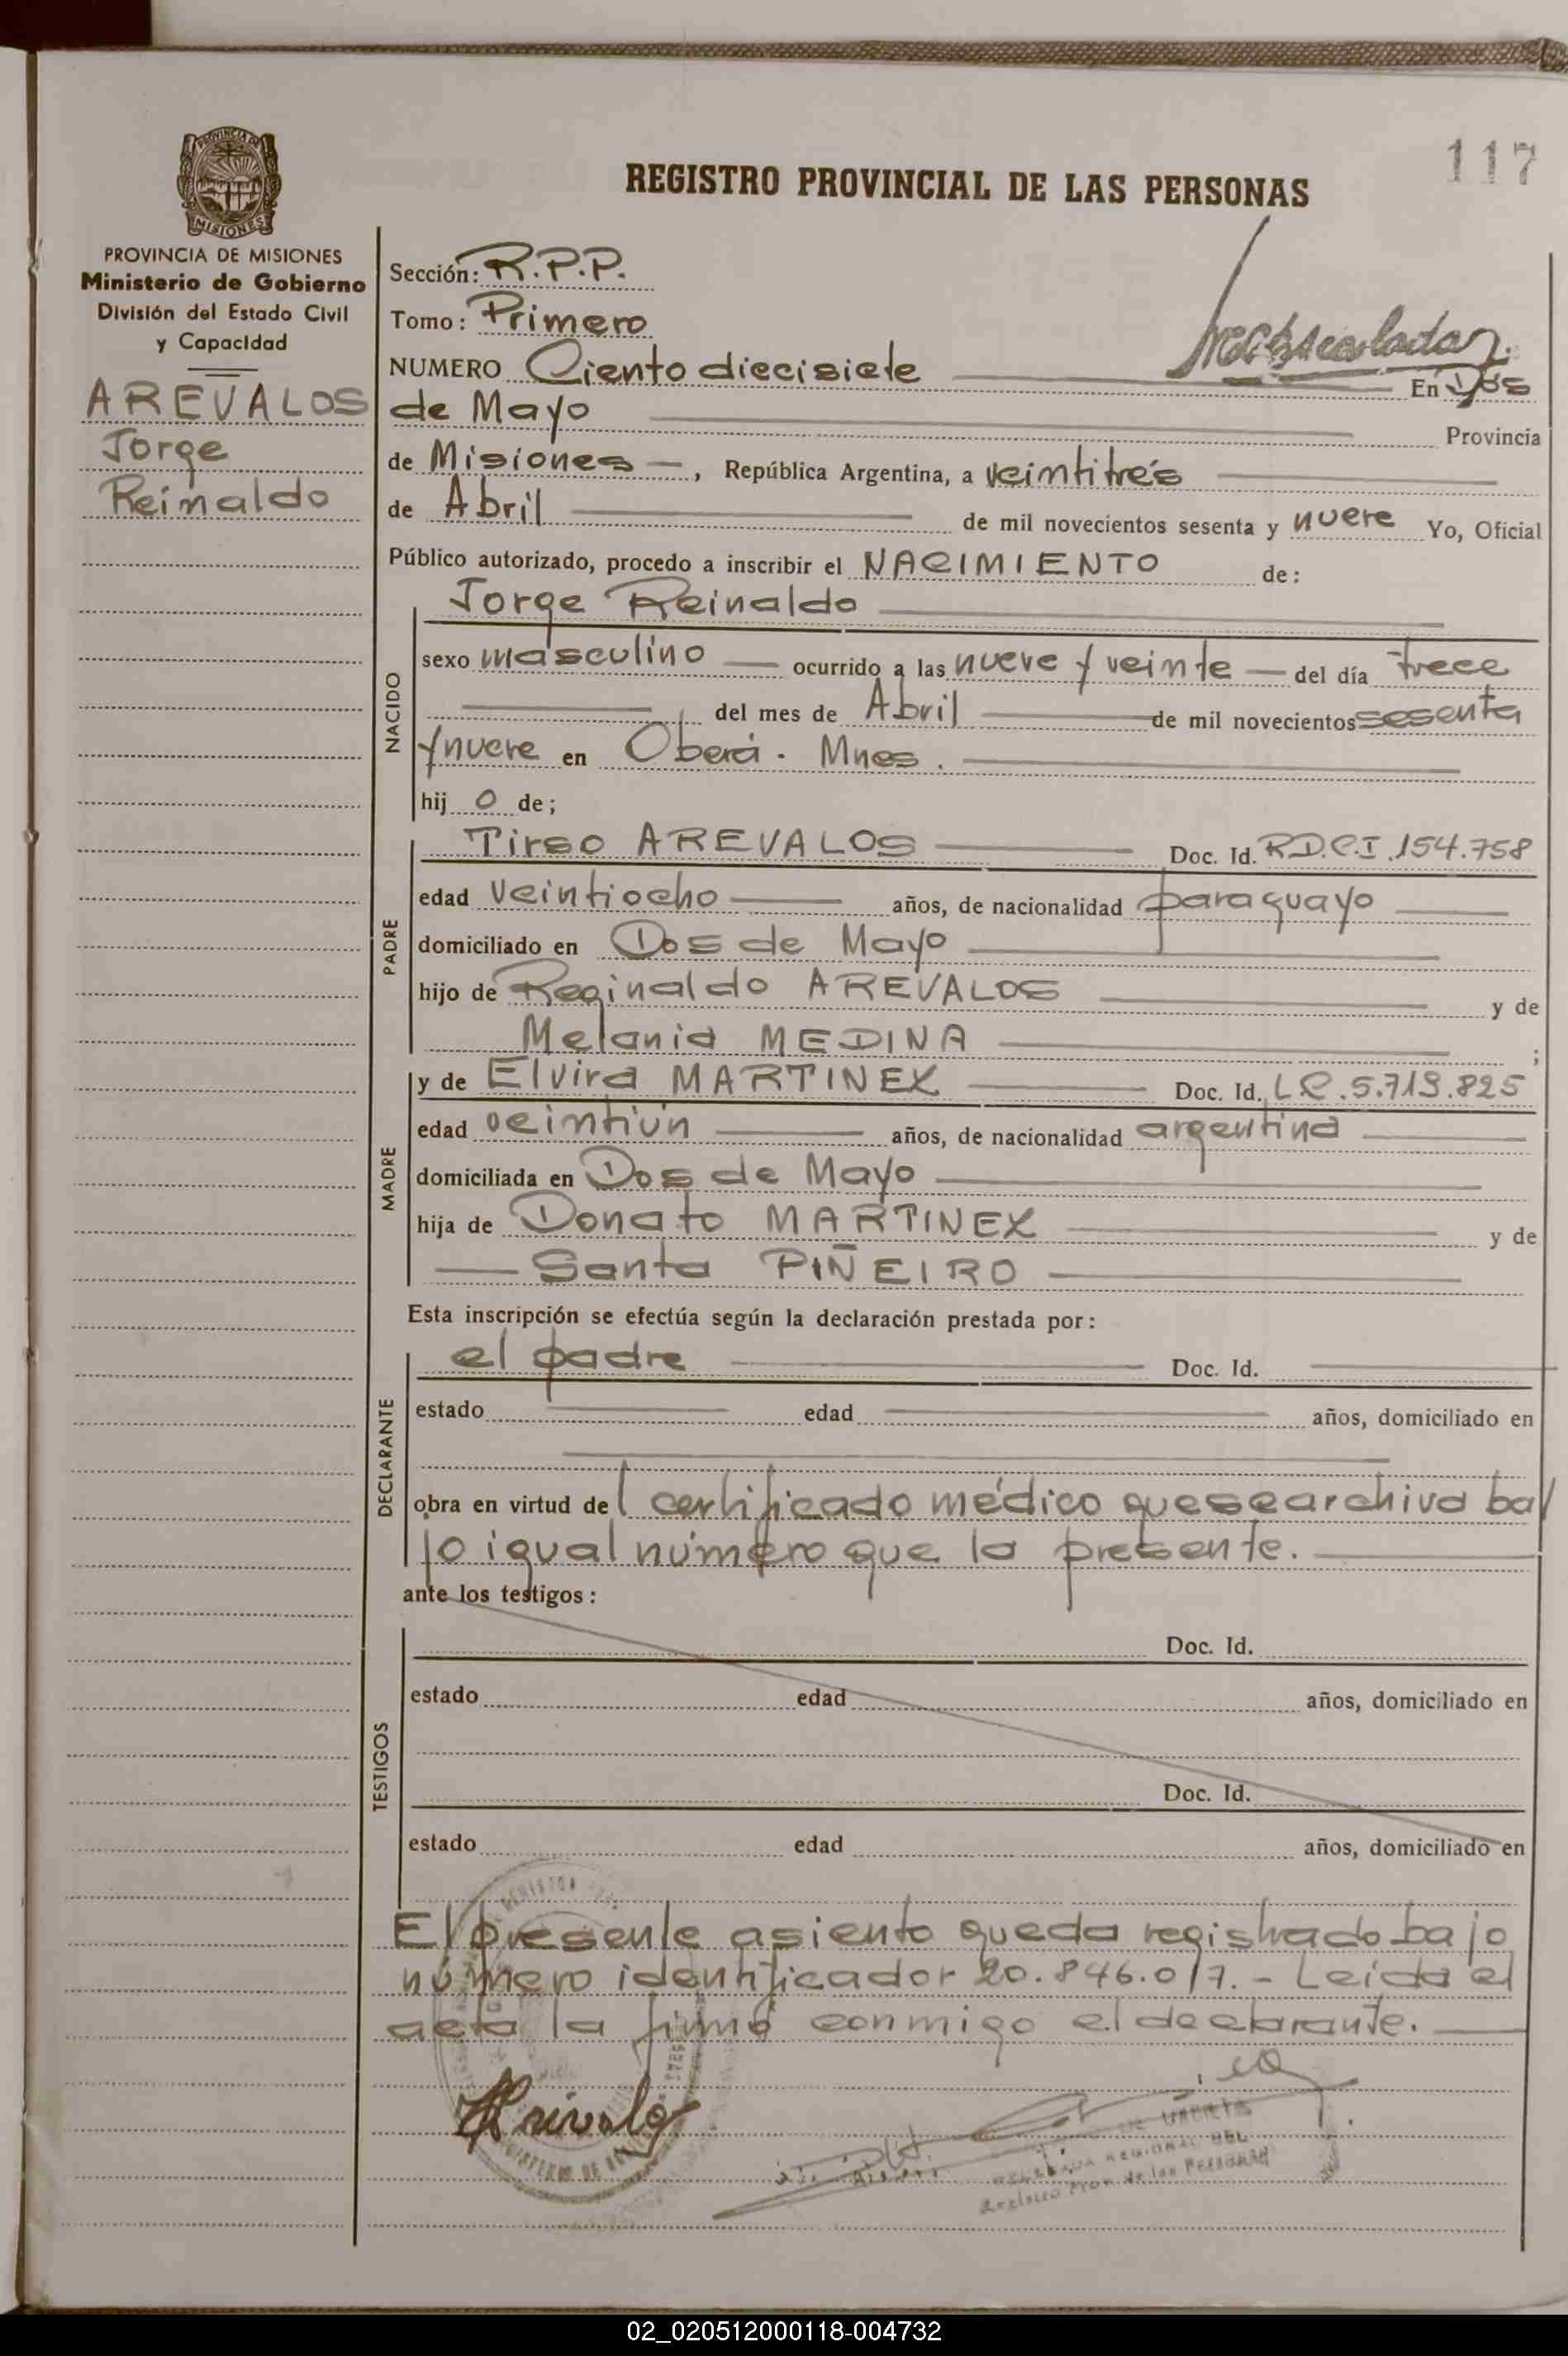 117
REGISTRO PROVINCIAL DE LAS PERSONAS
PROVINCIA DE MISIONES
Ministerio de Gobierno
División del Estado Civil
y Capacidad
AREVALOS
Jorge
Reinaldo
Sección: R.P.P.
Tomo: Primero
NUMERO Ciento diecisiete En Dos
de Mayo Provincia
de Misiones, República Argentina, a veintitrés
de Abril de mil novecientos sesenta y nueve Yo, Oficial
Público autorizado, procedo a inscribir el NACIMIENTO de:
Jorge Reinaldo
NACIDO
sexo masculino ocurrido a las nueve y veinte del día trece
del mes de Abril de mil novecientos sesenta
y nueve en Oberá. Mnes.
hij o de;
PADRE
Tirso AREVALOS Doc. Id. R.D.C.I. 154.758
edad veintiocho años, de nacionalidad paraguayo
domiciliado en Dos de Mayo
hijo de Reginaldo AREVALOS y de
Melania MEDINA ;
MADRE
y de Elvira MARTINEZ Doc. Id. L.C. 5.719.825
edad veintiún años, de nacionalidad argentina
domiciliada en Dos de Mayo
hija de Donato MARTINEZ y de
Santa PIÑEIRO
Esta inscripción se efectúa según la declaración prestada por:
DECLARANTE
el padre Doc. Id.
estado edad años, domiciliado en
obra en virtud del certificado médico que se archiva ba
jo igual número que la presente.
ante los testigos:
TESTIGOS
Doc. Id.
estado edad años, domiciliado en
Doc. Id.
estado edad años, domiciliado en
El presente asiento queda registrado bajo
número identificador 20.846.017.- Leída el
acta la firmó conmigo el declarante.
REGIONAL DEL
Registro Prov. de las Personas
02_020512000118-004732